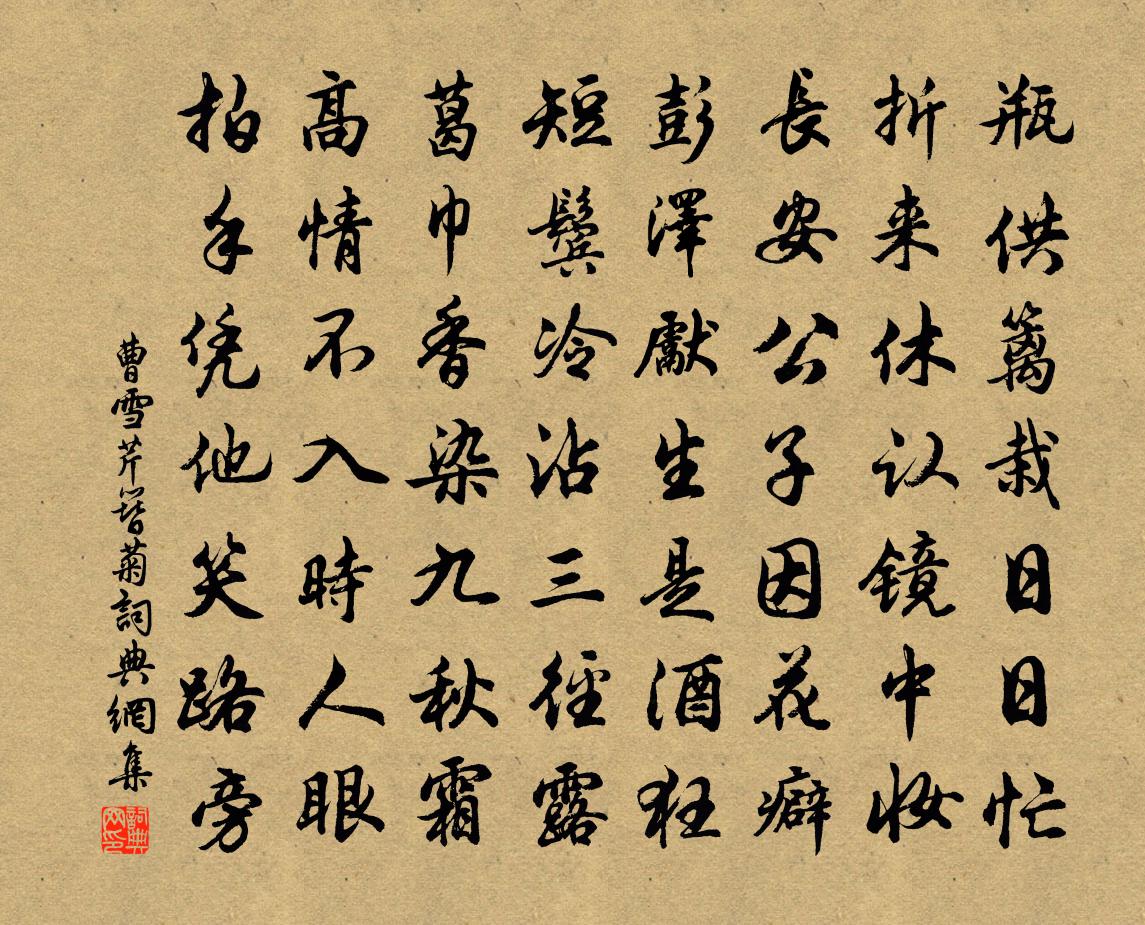 瓶供篱栽日日忙
折来休认镜中妆
長安公子因花癖
彭澤獻生是酒狂
短鬓冷沾三徑露
葛巾香染九秋霜
高情不入時人眼
拍手凭他笑路旁
曹雪芹簪菊詞典網集
詞典网印